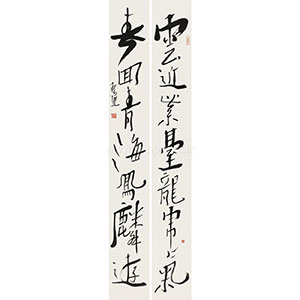 雲近紫臺龍虎氣
春回青海鳳麟遊